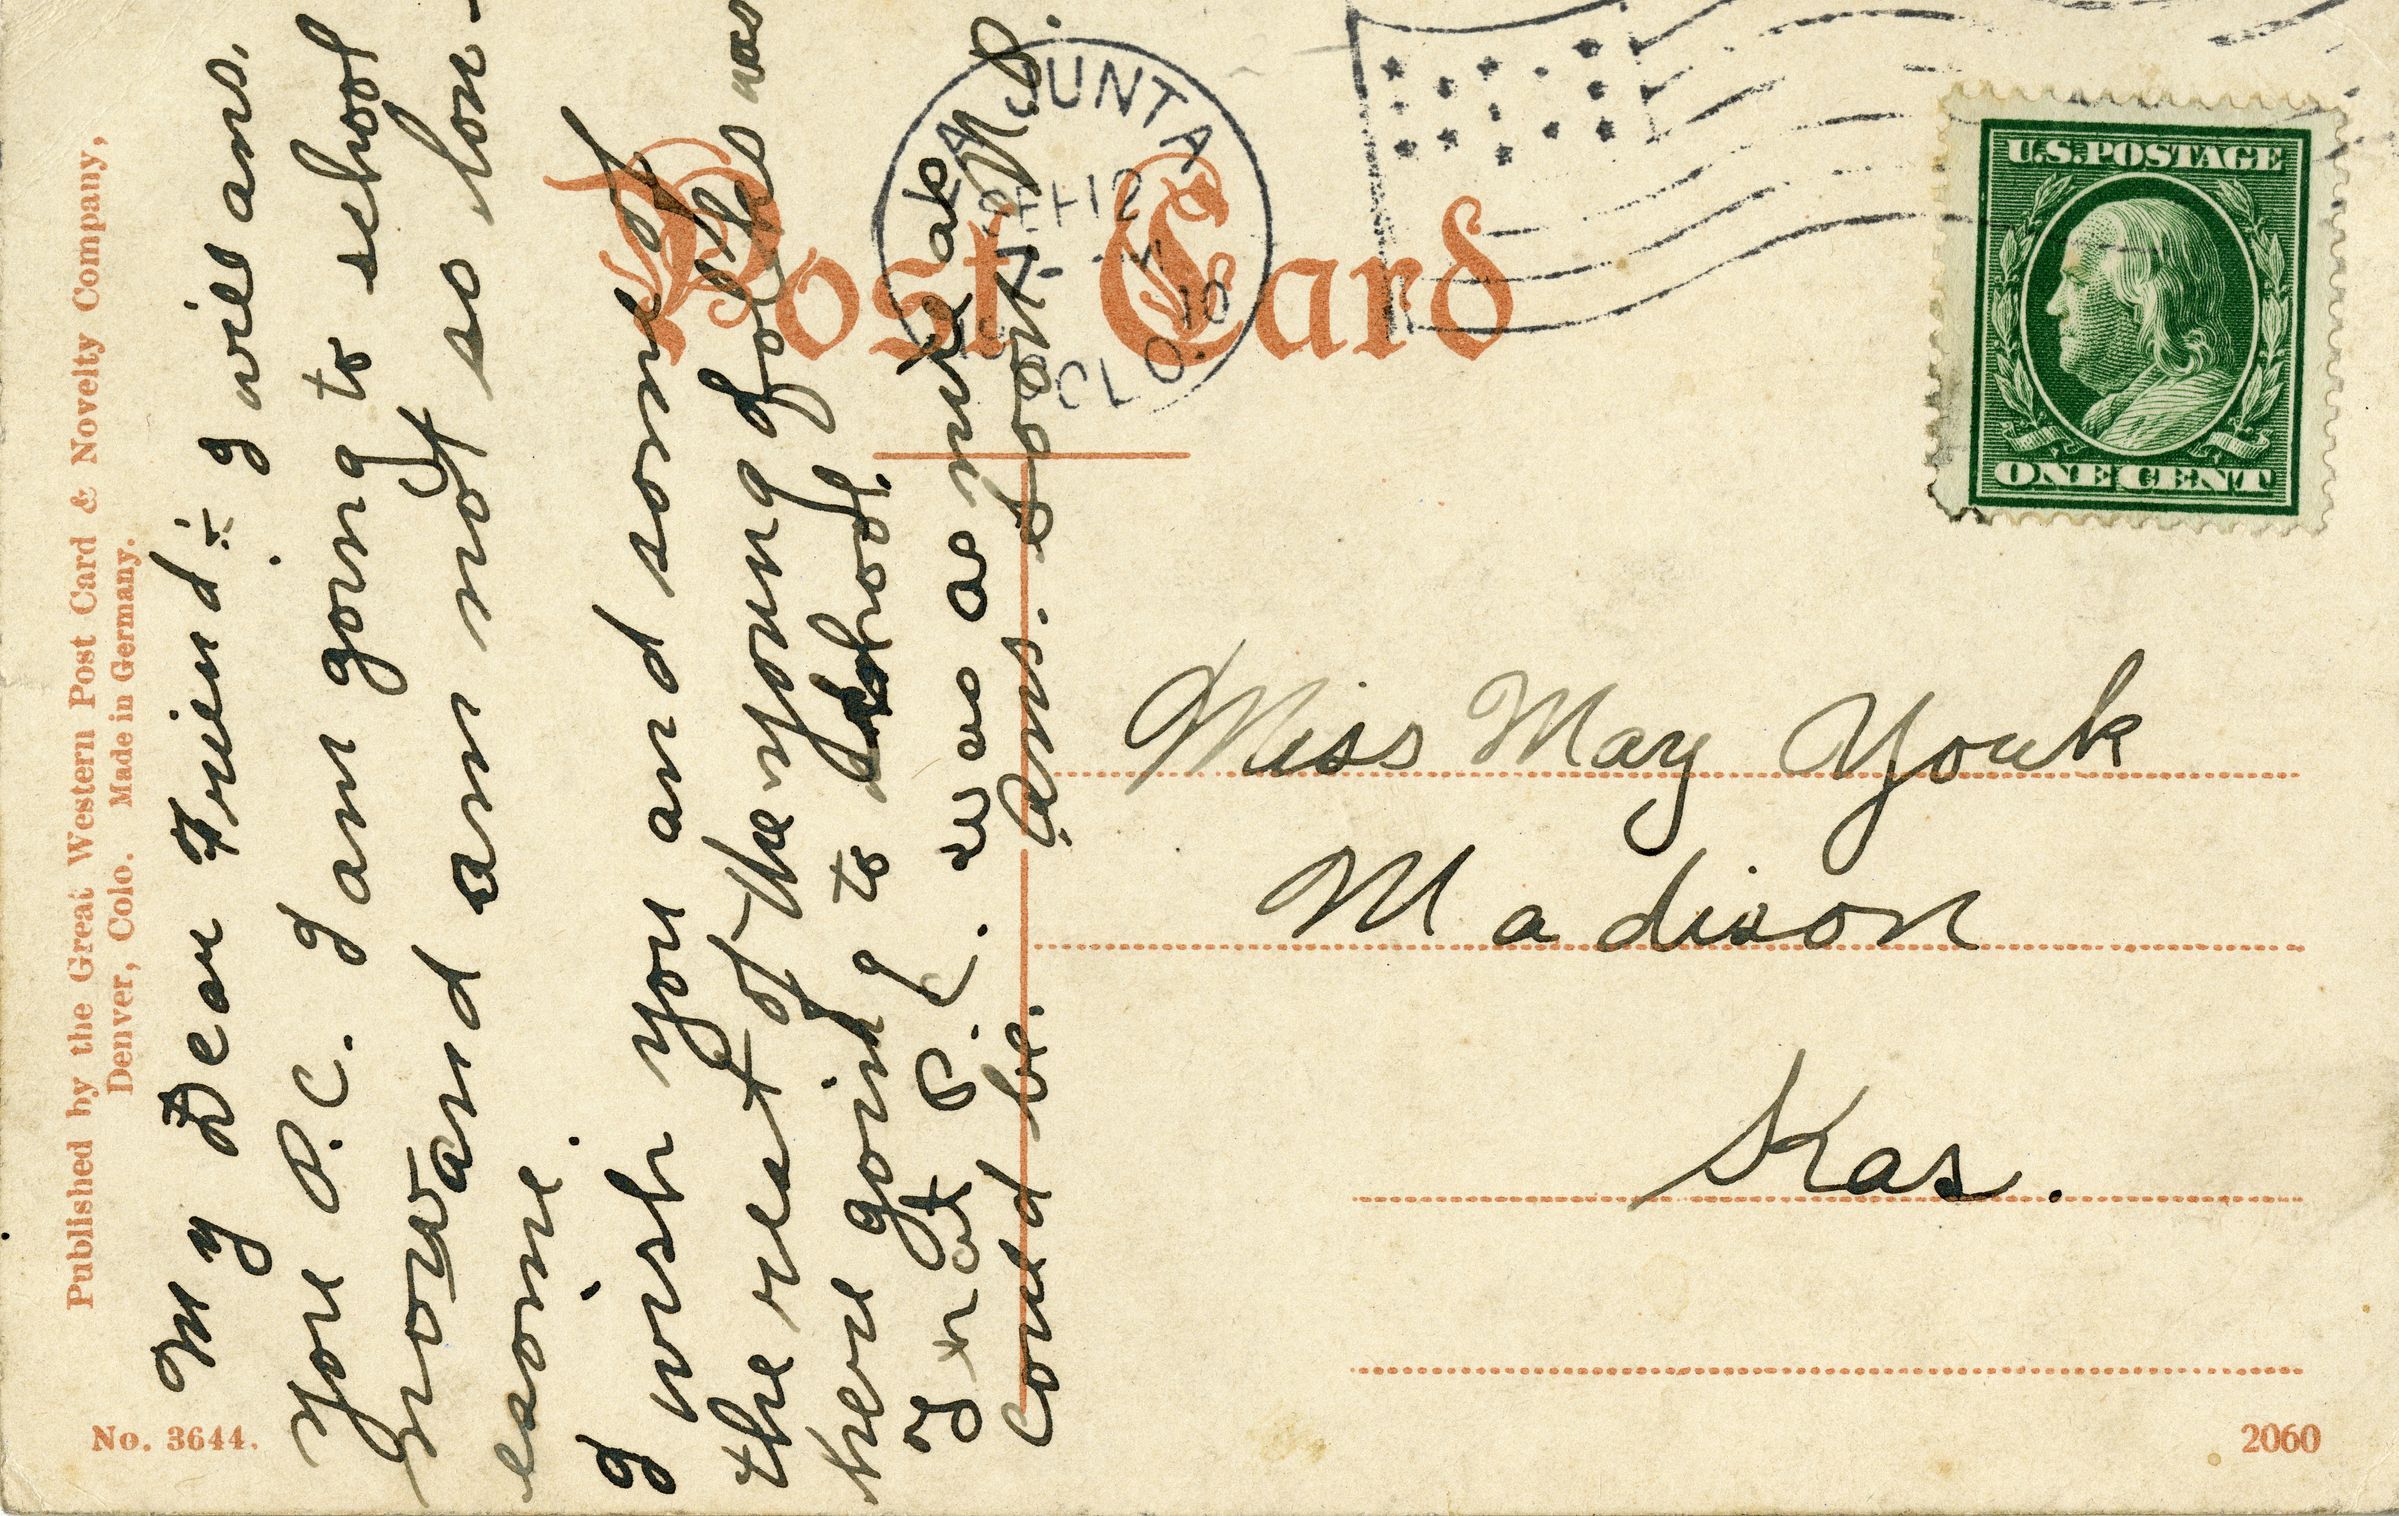 Published by the Great Western Post Card & Novelty Company,
Denver, Colo. Made in Germany.
No. 3644.
My Dear Friend:- I will ans.
your P.C. I am going to school
now and am not so lon-
esome.
I wish you and some of
the rest of the young folks was
here going to school.
Your P.C. was as nice as
could be. Ans. soon N.B.
Post Card
LA JUNTA
12
10
COLO.
U.S. POSTAGE
ONE CENT
Miss May Youk
Madison
Kas.
2060